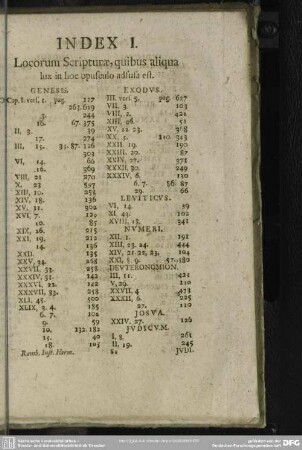 INDEX I.
Locorum Scripturæ, quibus aliqua
lux in hoc opusculo adfusa est.
GENESIS.
Cap. I. vers. 1. pag. 127
263. 629
3. 244
16. 67. 375
II. 3. 39
17. 274
III. 15. 87. 126
303
VI, 14. 66
16. 369
VIII, 21 270
X. 23 527
XIII, 10. 255
XIV, 18. 136
XV. 11. 302
XVI, 7. 129
10. 85
XIX, 26. 215
XXI, 19. 212
14. 136
XXII. 135
XXV, 34. 268
XXVII, 33. 258
XXXIV, 31. 142
XXXVI, 22. 142
XXXVII, 33. 258
XLI, 45. 500
XLIX, 3. 4. 185
6. 7. 102
9. 59
10. 132. 182
15. 40
18. 105
Ramb. Inst. Herm.
EXODUS.
III. vers. 5. pag. 627
VII. 3. 103
VIII, 2. 421
XIII, 96. 51
XV. 22. 23. 308
XX. 2. 110. 323
XXII. 19. 190
XXIII, 20. 87
XXIV, 27. 371
XXXII, 20. 249
XXXIV, 6. 110
6. 7. 56. 87
29. 66
LEVITICUS.
VI, 14. 39
XI, 43. 102
XVIII, 18. 341
NUMERI.
XII. 1. 191
XIII, 23. 24. 444
XIV, 21. 22, 23, 104
XXI, 8. 9. 57. 180
DEUTERONOMION.
III, 11. 421
V, 29. 110
XXVII, 4 471
XXXII, 6. 225
27. 110
JOSUA.
XXIV. 27. 126
JUDICUM.
I, 8. 261
II, 19. 245
JUDI-